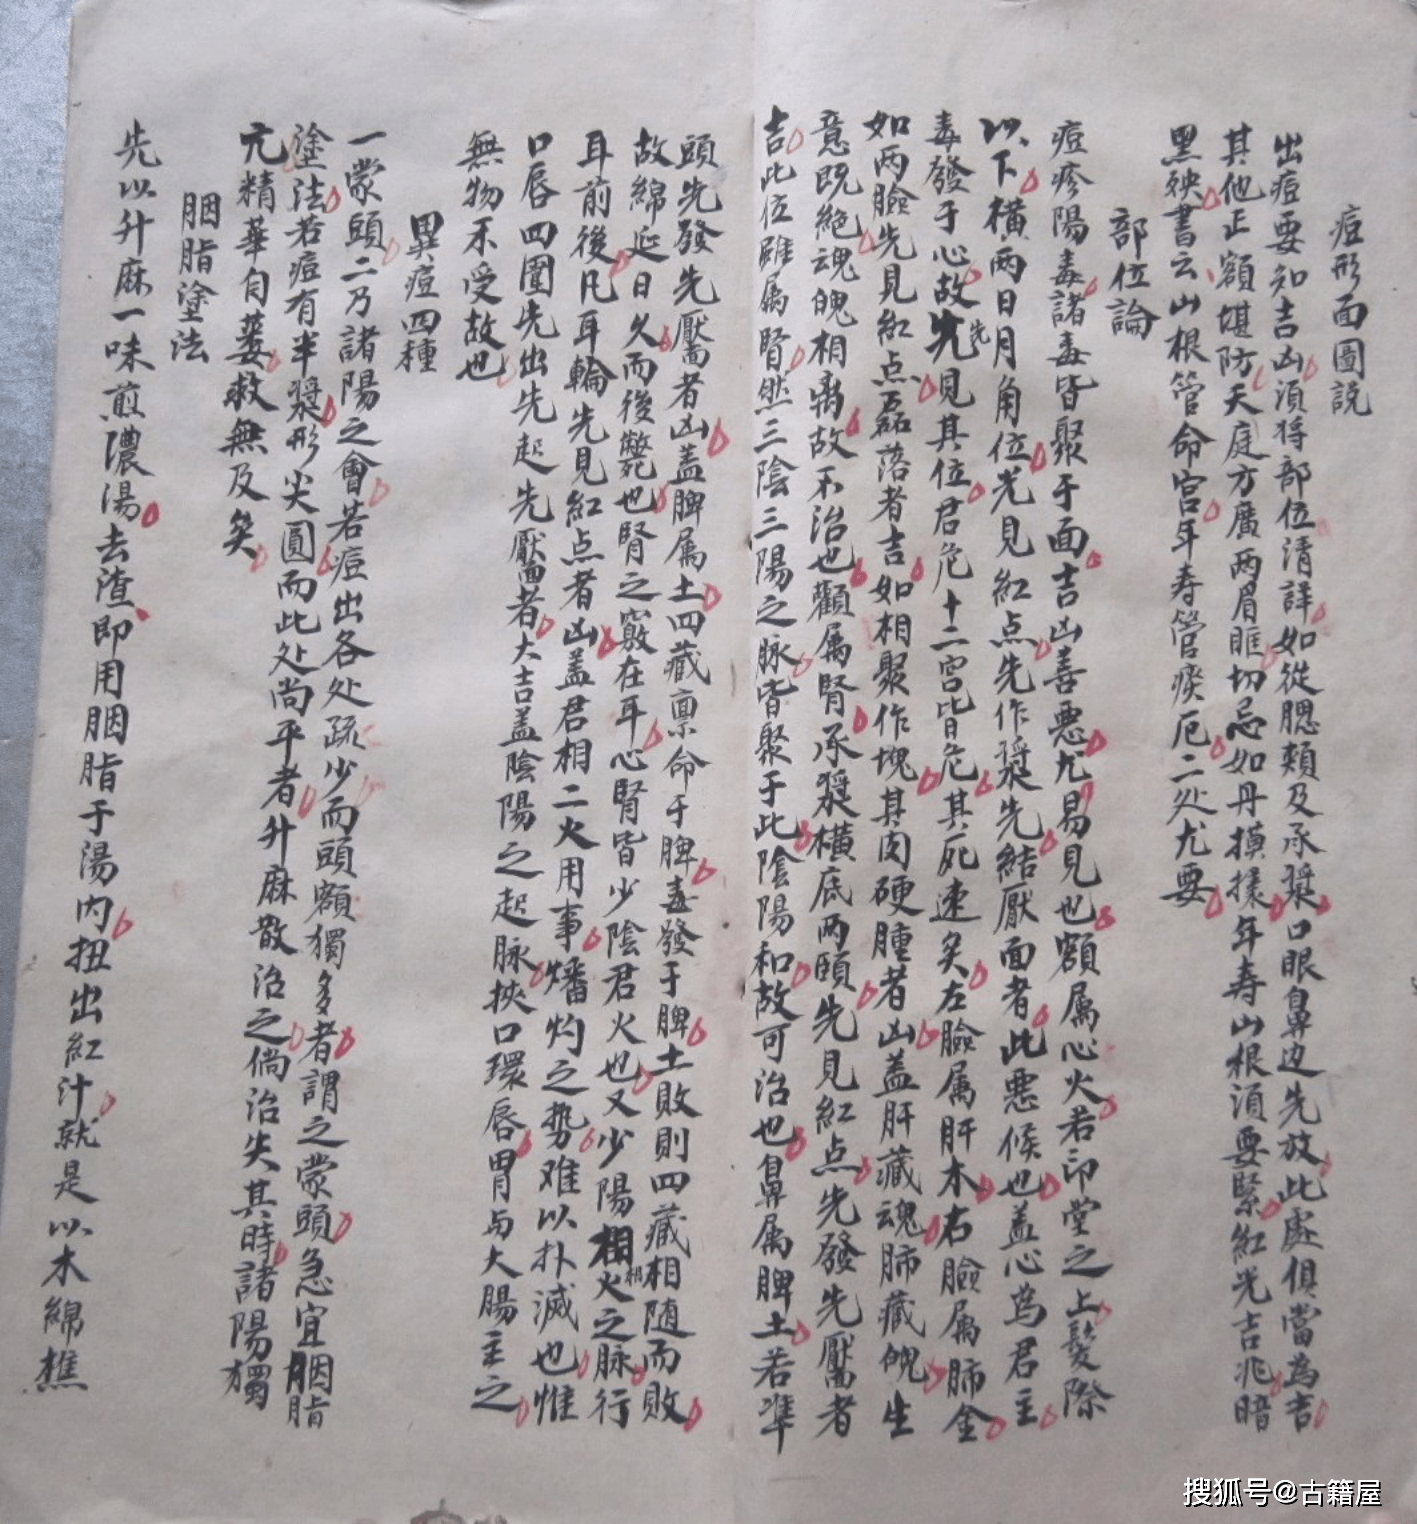 痘形面圖説
出痘要知吉凶須将部位清詳如從腮頬及承漿口眼鼻边先放此處俱當為吉
其他正額堪防天庭方廣两眉眶切忌如丹摸揉年寿山根須要緊紅光吉兆暗
黑殃書云山根管命宫年寿管瘊厄二处尤要
部位論
痘疹陽毒諸毒皆聚于面吉凶善悪尤易見也額属心火若印堂之上髮際
以下横两日月角位先見紅点先作漿先結厭面者此悪候也盖心為君主
毒發于心故先先見其位君危十二宫皆危其死速矣左臉属肝木右臉属肺金
如两臉先見紅点磊落者吉如相聚作塊其肉硬腫者凶盖肝藏魂肺藏魄生
意既絶魂魄相离故不治也顴属腎承漿横底两頤先見紅点先發先靨者
吉此位雖属腎然三陰三陽之脉皆聚于此陰陽和故可治也鼻属脾土若準
頭先發先靨者凶盖脾属土四藏禀命于脾毒發于脾土敗則四藏相随而敗
故綿延日久而後斃也腎之竅在耳心腎皆少陰君火也又少陽相相火之脉行
耳前後凡耳輪先見紅点者凶盖君相二火用事燔灼之势难以扑滅也惟
口唇四圍先出先起先靨者大吉盖陰陽之起脉挾口環唇胃与大腸主之
無物不受故也
異痘四種
一蒙頭二乃諸陽之會若痘出各处疏少而頭額獨多者謂之蒙頭急宜胭脂
塗法若痘有半漿形尖圓而此处尚平者升麻散治之倘治失其時諸陽獨
亢精華自萎救無及矣
胭脂塗法
先以升麻一味煎濃湯去渣即用胭脂于湯内扭出紅汁就是以木綿樵
搜狐号@古籍屋